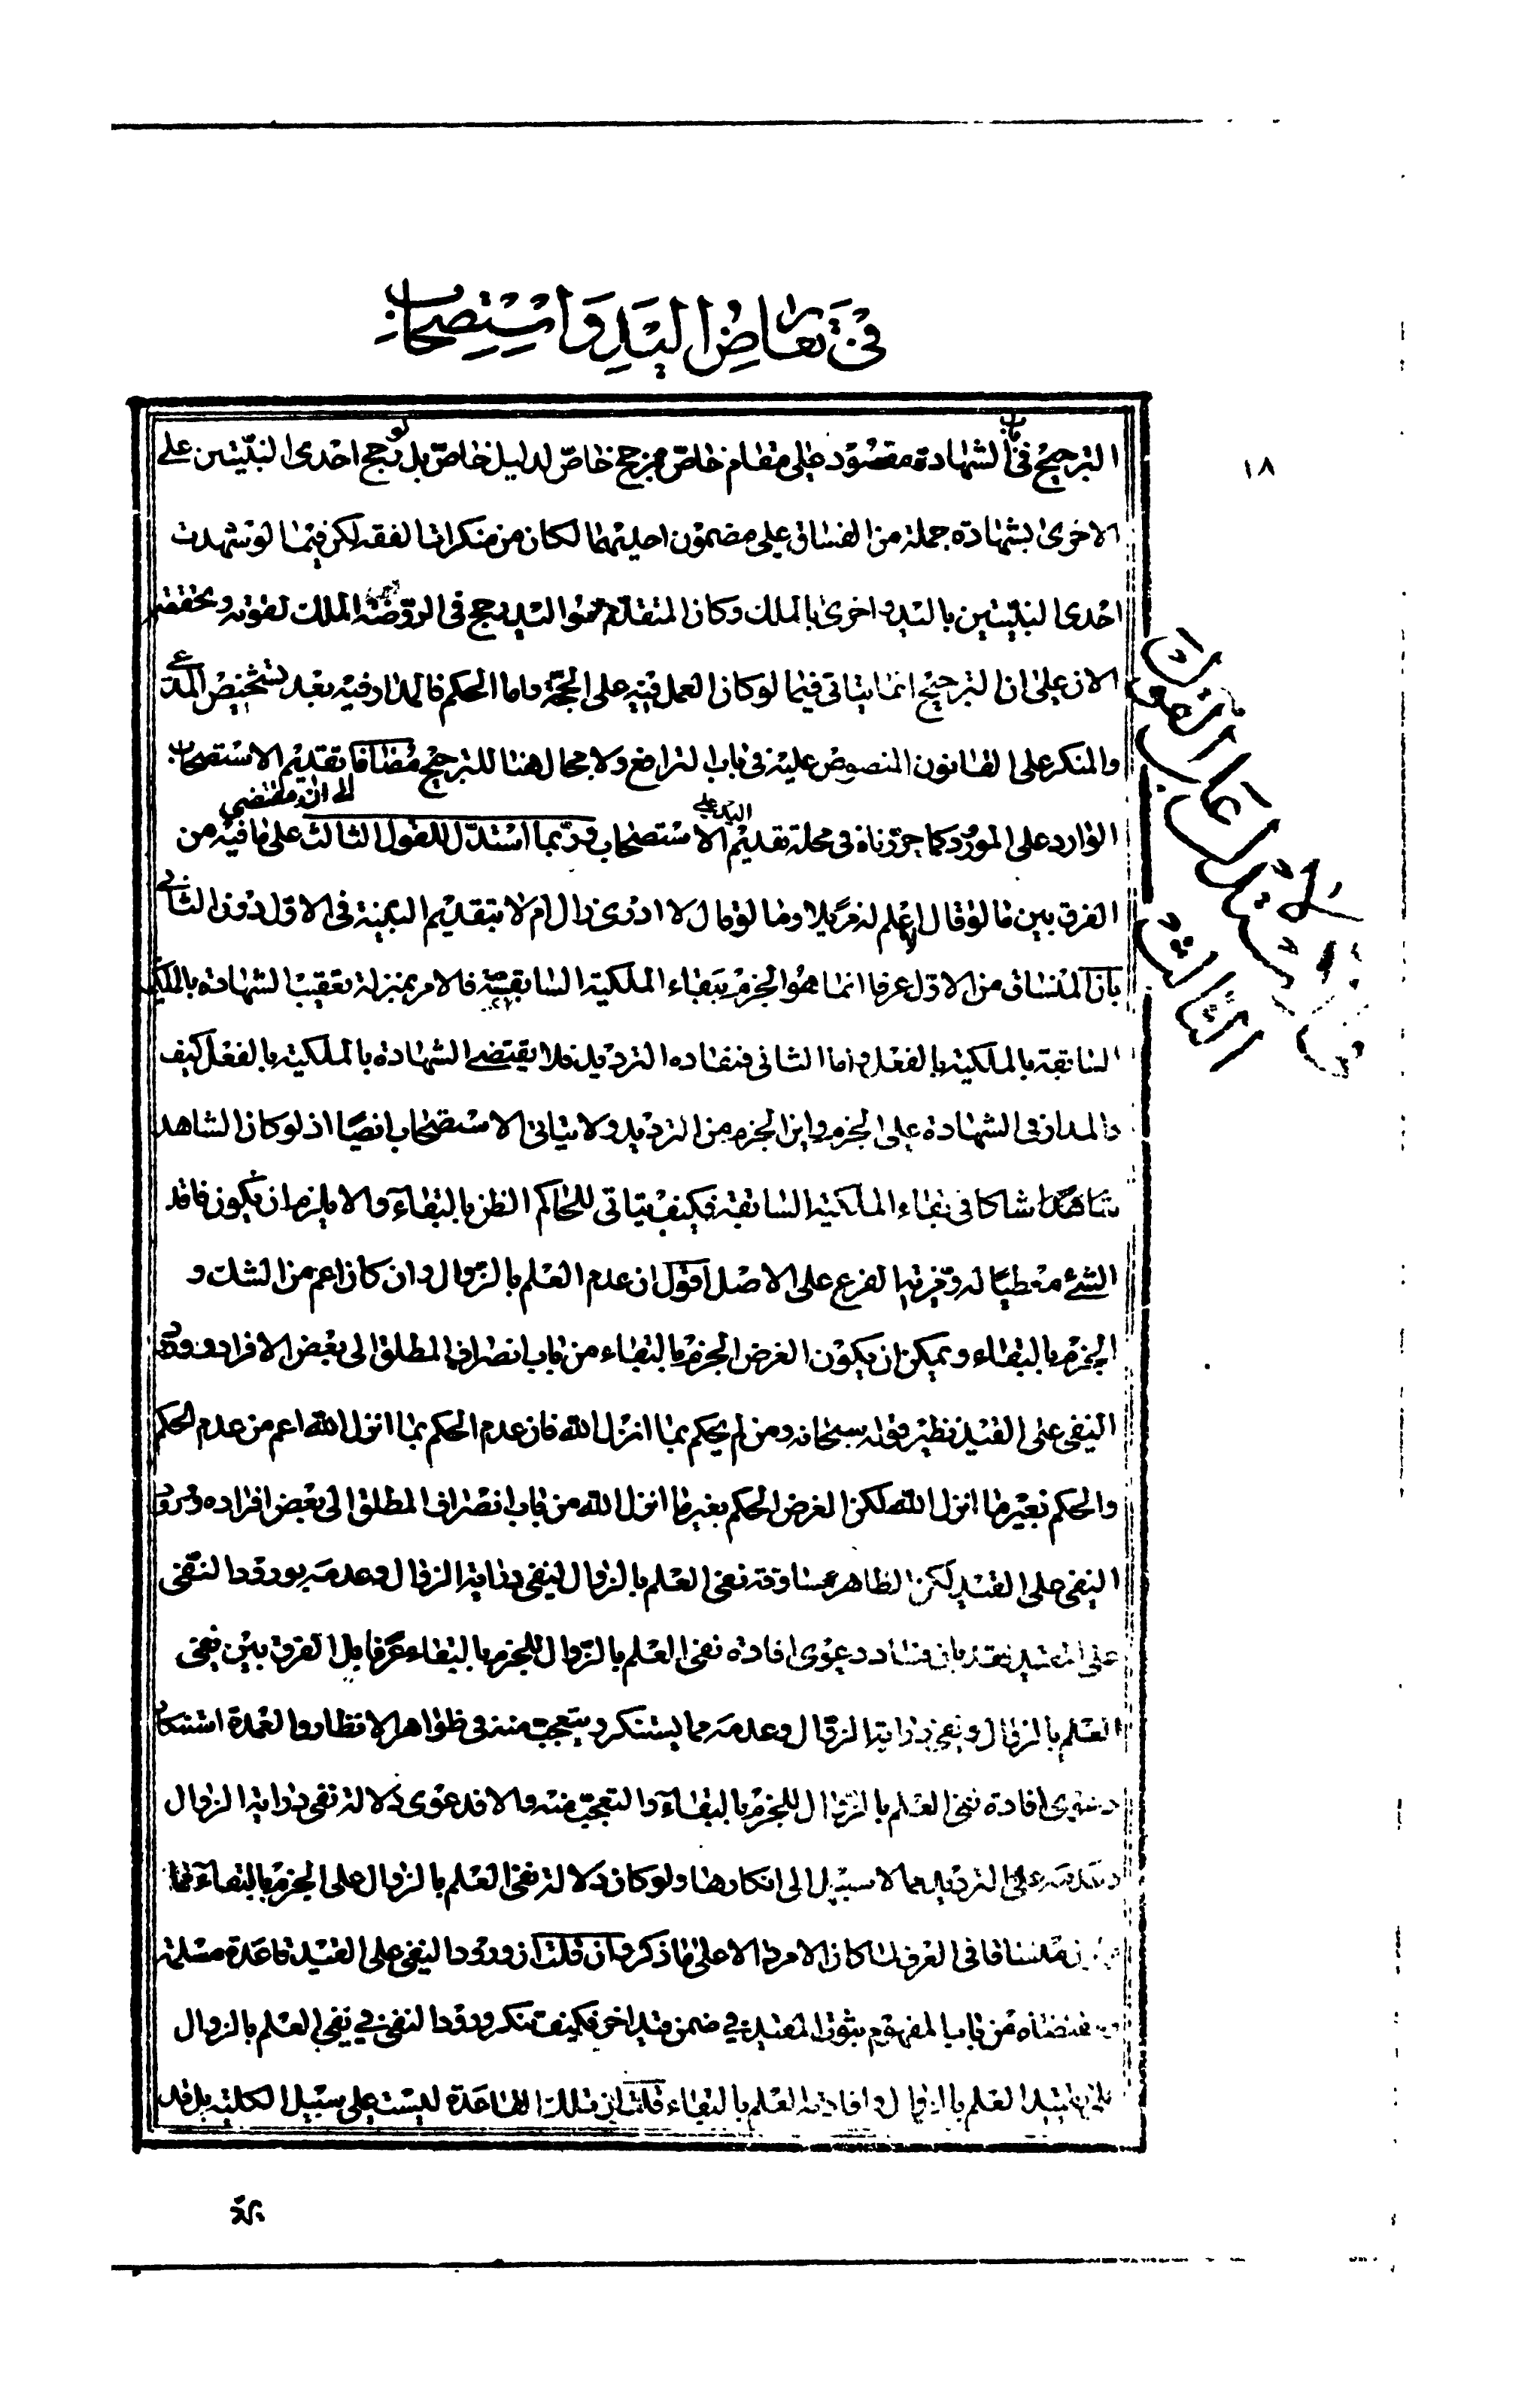 في تعارض اليد واستصحاب
١٨
الترجيح في باب الشهادة مقصود على مقام خاص مرجح خاص لدليل خاص بل لو رجح احدى البينتين على
الاخرى بشهادة جملة من الفساق على مضمون احديهما لكان من منكرات الفقه لكن فيما لو شهدت
احدى البينتين باليد واخرى بالملك وكان المتقدم هو اليد رجح في الروضة الملك لقوته وتحققه
الان على ان الترجيح انما يتاتى فيما لو كان العمل فيه على الحجة واما الحكم فالمدار فيه بعد تشخيص المدعي
والمنكر على القانون المنصوص عليه في باب الترافع ولا مجال هنا للترجيح مضافا تقديم الاستصحاب
الى ان مقتضى
الوارد على المورود كما حررناه في محله تقديم اليد على الاستصحاب وربما استدل للقول الثالث على ما فيه من
الفرق بين ما لو قال لا اعلم له مزيلا وما لو قال لا ادرى زال ام لا بتقديم البينة في الاول دون الثاني
بان المنساق من الاول عرفا انما هو الجزم ببقاء الملكية السابقة فالامر بمنزلة تعقيب الشهادة بالملكية
السابقة بالملكية بالفعل واما الثاني فمفاده الترديد فلا يقتضى الشهادة بالملكية بالفعل كيف
والمدار في الشهادة على الجزم واين الجزم من الترديد ولا يتاتى الاستصحاب ايضا اذ لو كان الشاهد
شاهدا شاكا في بقاء الملكية السابقة فكيف يتاتى للحاكم الظن بالبقاء والا يلزم ان يكون فاقد
الشئ معطيا له ومزية الفرع على الاصل اقول ان عدم العلم بالزوال وان كان اعم من الشك و
الجزم بالبقاء ويمكن ان يكون الغرض الجزم بالبقاء من باب انصراف المطلق الى بعض الافراد وورود
النفى على القيد نظير قوله سبحانه ومن لم يحكم بما انزل الله فان عدم الحكم بما انزل الله اعم من عدم الحكم
والحكم بغير ما انزل الله لكن الغرض الحكم بغير ما انزل الله من باب انصراف المطلق الى بعض افراده وورود
النفى على القيد لكن الظاهر مساوقة نفى العلم بالزوال لنفى دراية الزوال وعدمه بورود النفى
على القيد بان فساد دعوى افادة نفى العلم بالزوال للجزم بالبقاء عرفا بل الفرق بين نفى
العلم بالزوال ونفى دراية الزوال وعدمه مما يستنكر ويتعجب منه في ظواهر الانظار والعمدة استنكار
دعوى افادة نفى العلم بالزوال للجزم بالبقاء والتعجب منه والا فدعوى دلالة نفى دراية الزوال
وعدمه على الترديد مما لا سبيل الى انكارها ولو كان دلالة نفى العلم بالزوال على الجزم بالبقاء مما
منساقا في العرف لما كان الامر الا على ما ذكر وان قلت ان ورود النفى على القيد قاعدة مسلمة
من باب المفهوم ثبوت المقيد في ضمن قيد اخر فكيف تنكر ورود النفى في نفى العلم بالزوال
العلم بالزوال وافادته العلم بالبقاء قلت ان تلك القاعدة ليست على سبيل الكلية بل قد